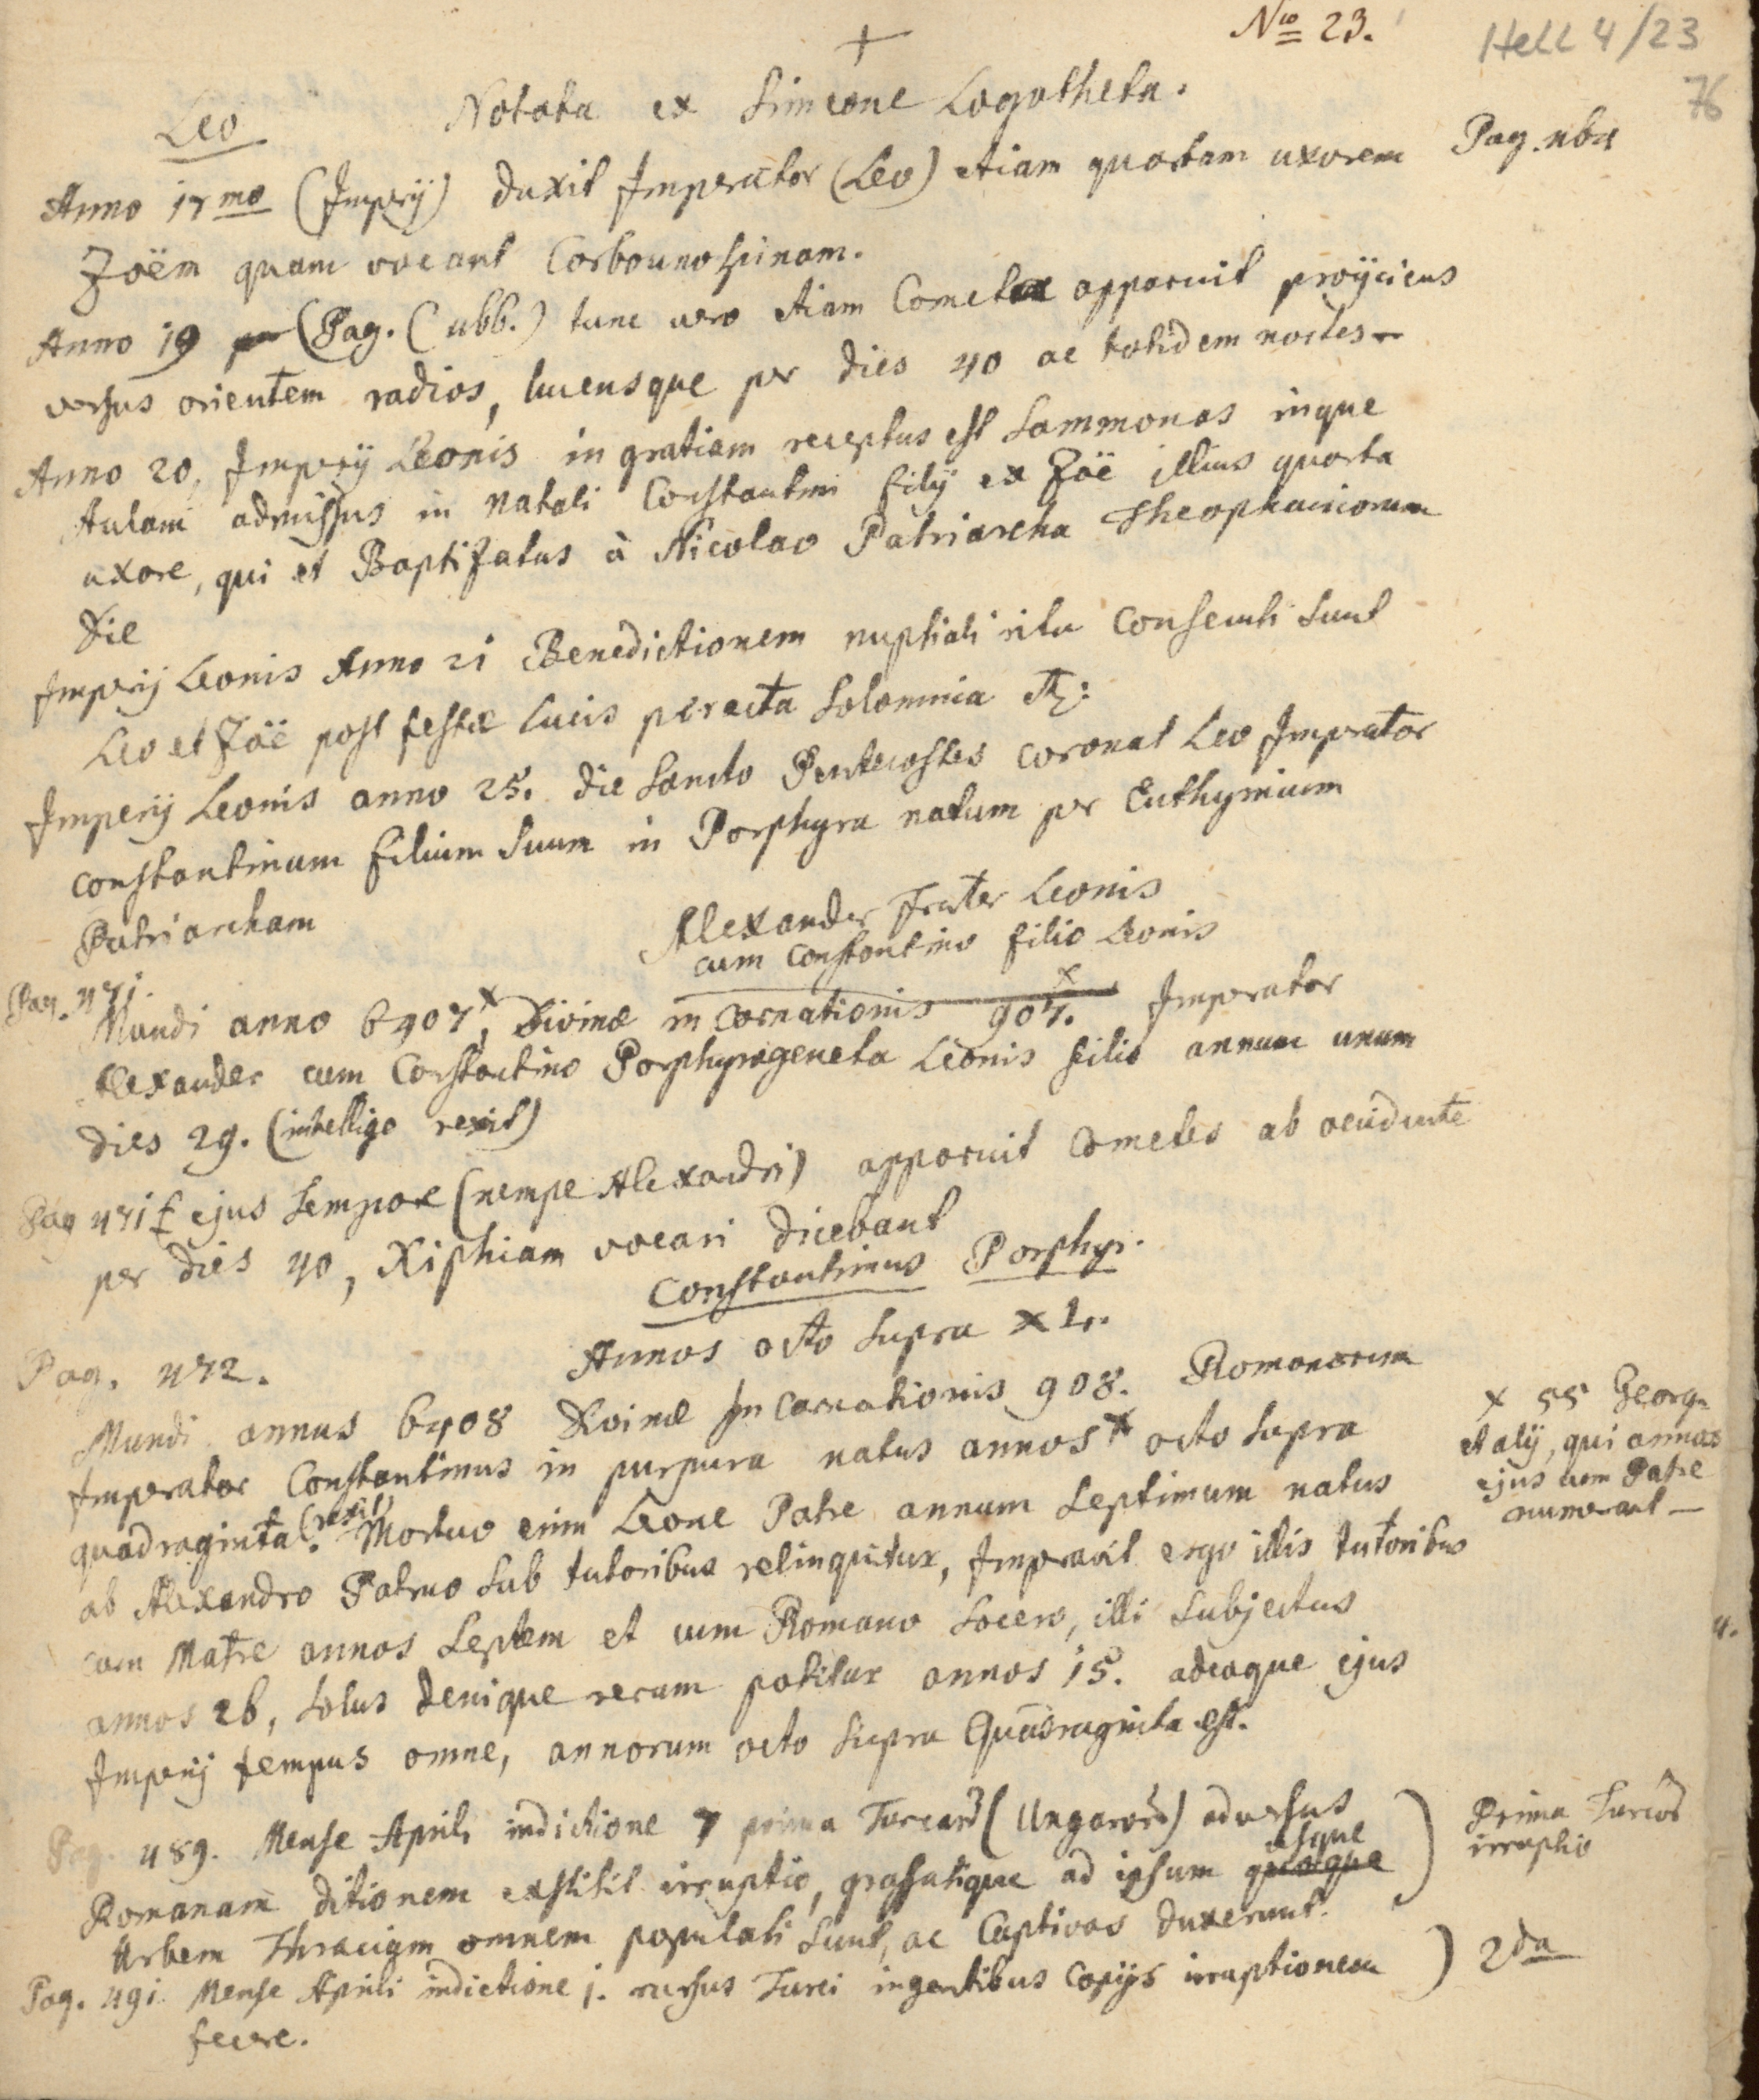 No 23.
Hell 4/23
76
+
Notata ex Simeone Logotheta.
Leo
Pag. 
Anno 17mo (Imperij) duxit Imperator (Leo) etiam quartam uxorem
Zoëm quam vocant Carbounopsinam.
Anno 19 (Pag. ( ubb.) tunc vero etiam Cometa apparuit proijciens
versus orientem radios, lucensque per dies 40 ac totidem noctes —
Anno 20, Imperij Leonis in gratiam receptus est Sammonas inque
Aulam admissus in natali Constantini filij ex Zoë illius quarta
uxore, qui et Baptizatus à Nicolao Patriarcha Theophaniorum
die
Imperij Leonis Anno 21 Benedictionem nuptiali ritu consecuti sunt
Leo et Zoë post festæ lucis peracta solomnia &:
Imperij Leonis anno 25. die Sancto Pentecostes coronat Leo Imperator
Constantinum filium suum in Porphyra natum per Euthymium
Patriarcham
Alexander frater Leonis
cum Constantino filio Leonis
Pag. 471.
Mundi anno 6407,x Divinæ incarnationis 907.x Imperator
Alexander cum Constantino Porphyrogeneta Leonis filio annum unum
dies 29. (intelligo rexit)
Pag 471 ejus tempore (nempe Alexandri) apparuit Cometes ab occidente
per dies 40, Xiphiam vocari dicebant
Constantinus Porphyr.
Annos octo supra XL.
Pag. 472.
Mundi annus 6408 Divinæ Incarnationis 908. Romanorum
Imperator Constantinus in purpura natus annos x octo supra
quadraginta (rexit). Mortuo enim Leone Patre annum septimum natus
ab Alexandro Patruo sub tutoribus relinquitur, Imperavit ergo illis tutoribus
cum Matre annos septem et cum Romano socero, illi subjectus
annos 26, solus denique rerum potitur annos 15. adeoque ejus
Imperij tempus omne, annorum octo supra Quadraginta est.
x 55 Georg.
et alij, qui annos
ejus cum Patre
numerant —
Pag. 489. Mense Aprili indictione 7 prima Turcarū (Ungarorū) adversus
Romanam ditionem exstitit irruptio, grassatique ad ipsum quoque usque
Urbem Thraciam omnem populati sunt, ac Captivos duxerunt.
Prima Turcorū
irruptio
Pag. 491. Mense Aprili indictione j. rursus Turci ingentibus copijs irruptionem
fecere.
2da